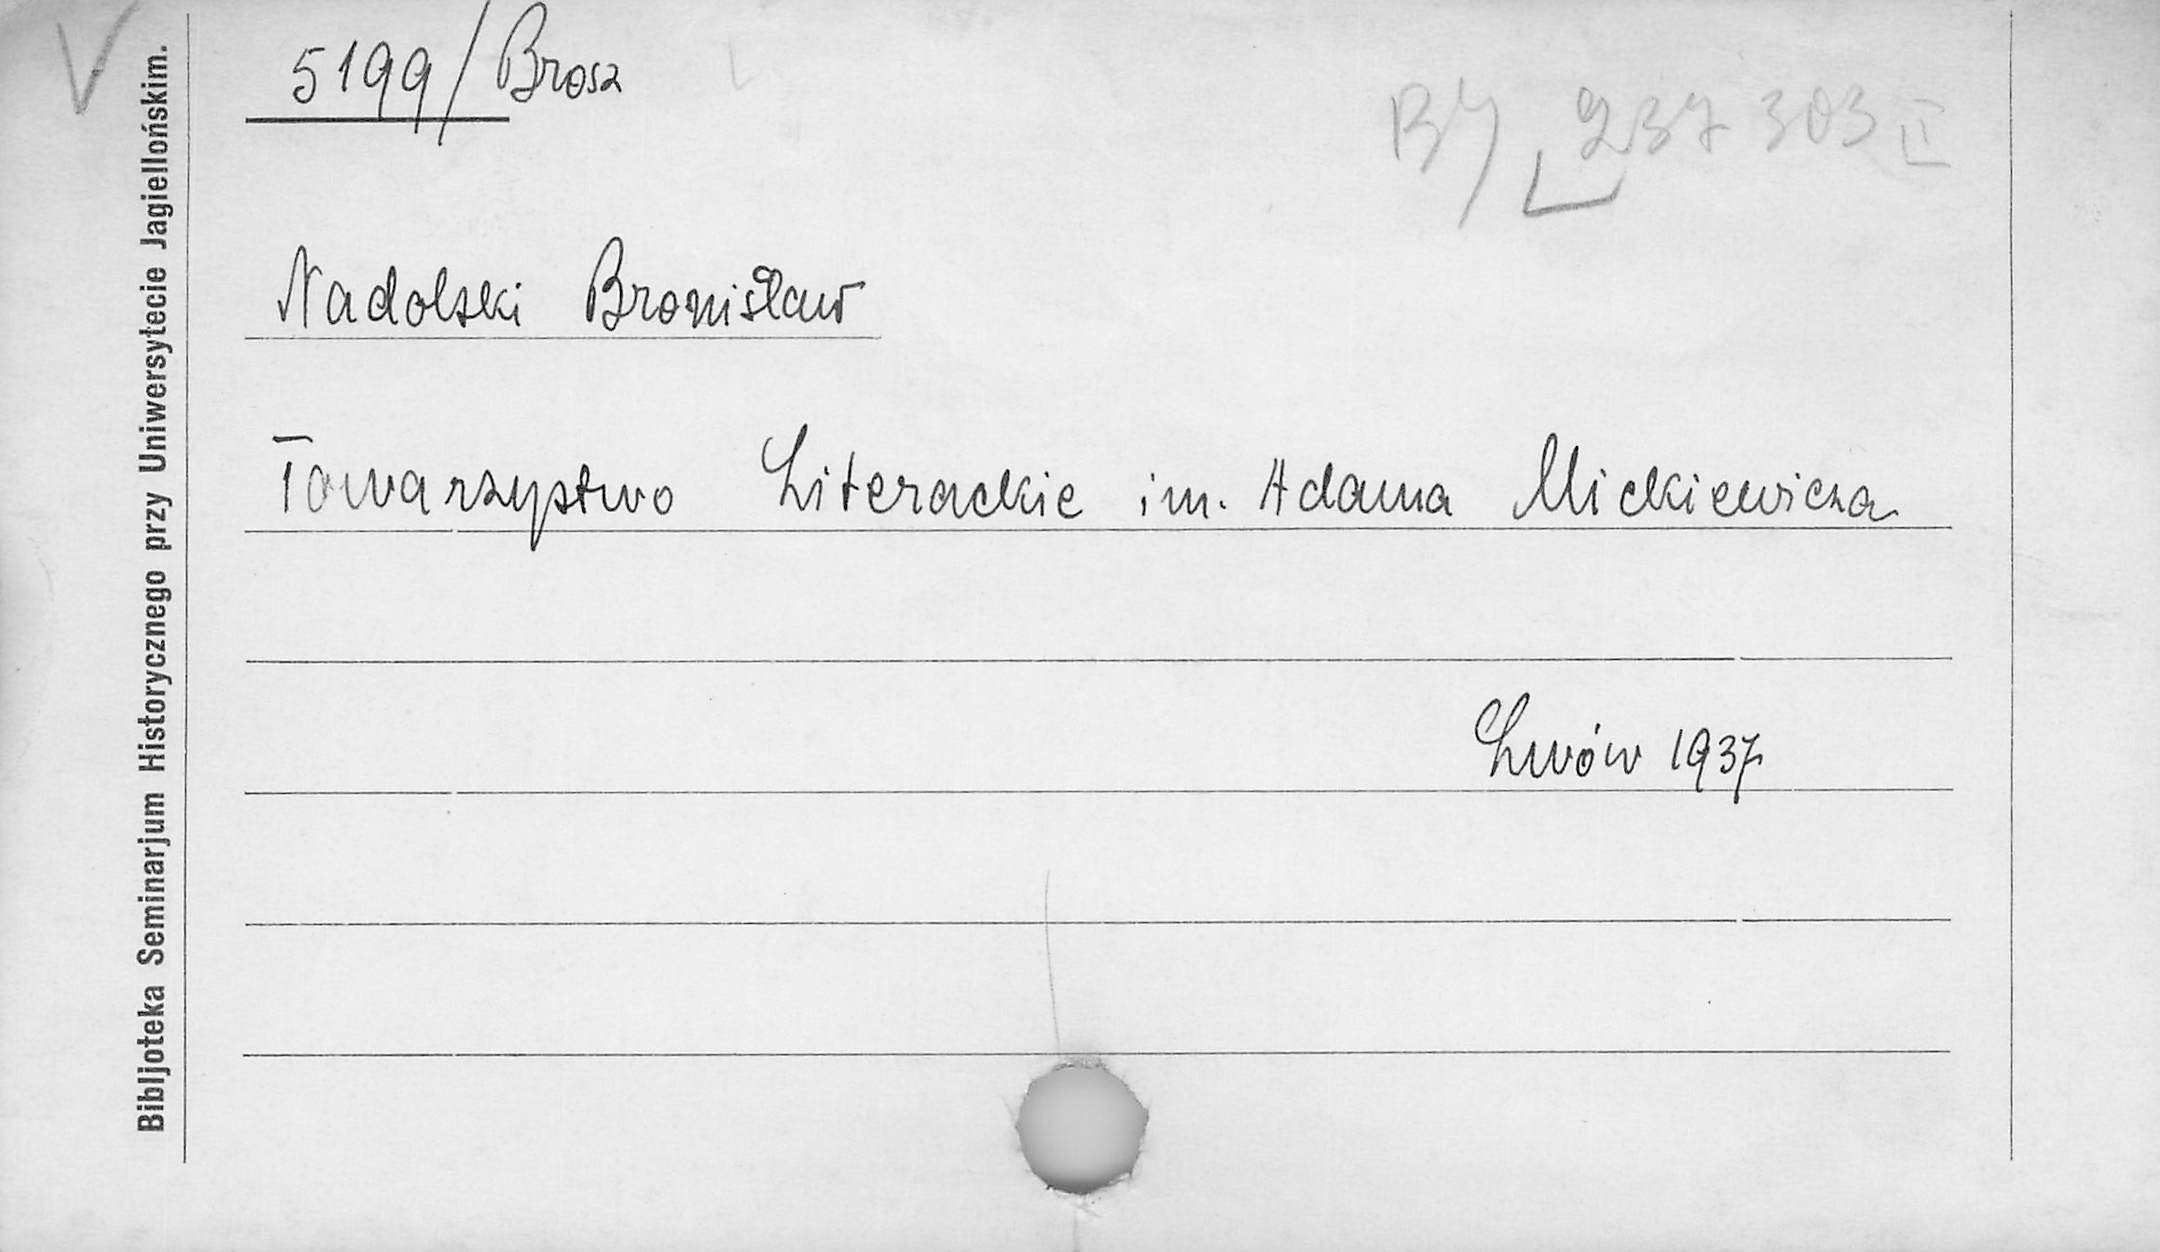 5199/Brosz
BJ 237 303 II
Nadolski Bronisław
Towarzystwo Literackie im. Adama Mickiewicza
Lwów 1937
Bibljoteka Seminarjum Historycznego przy Uniwersytecie Jagiellońskim.